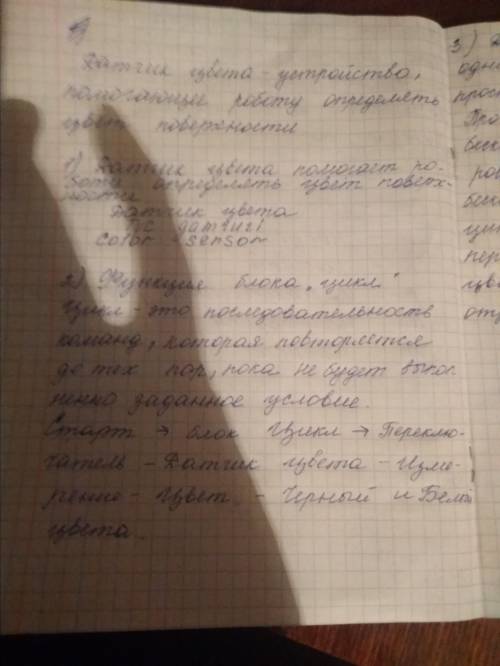 Датчик цвета - устройства,
помогающие роботу определять
цвет поверхности
1) Датчик цвета помогает ро-
боту определять цвет поверх-
ности
Датчик цвета
Түс датчигі
Color sensor
2) Функция блока "цикл"
Цикл - это последовательность
команд, которая повторяется
до тех пор, пока не будет выпол
ненно заданное условие.
Старт → блок Цикл → Переклю-
чатель - Датчик цвета - Изме-
рение - Цвет - Черный и Белый
цвета.
3)